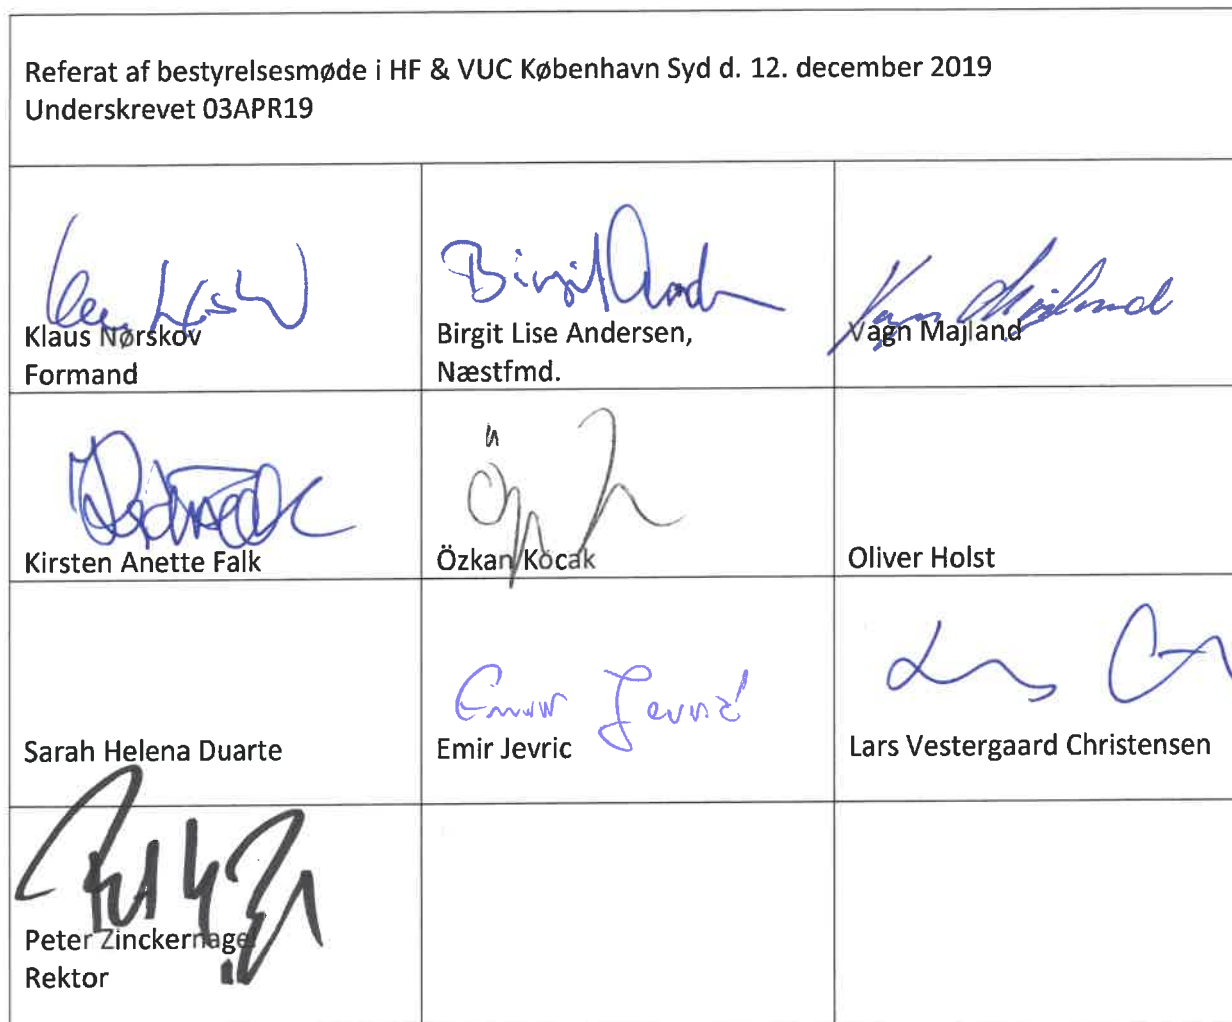 Referat af bestyrelsesmøde i HF & VUC København Syd d. 12. december 2019
Underskrevet 03APR19
Klaus Nørskov
Formand
Birgit Lise Andersen,
Næstfmd.
Vagn Majland
Kirsten Anette Falk
Özkan Kocak
Oliver Holst
Sarah Helena Duarte
Emir Jevric
Lars Vestergaard Christensen
Peter Zinckernagel
Rektor